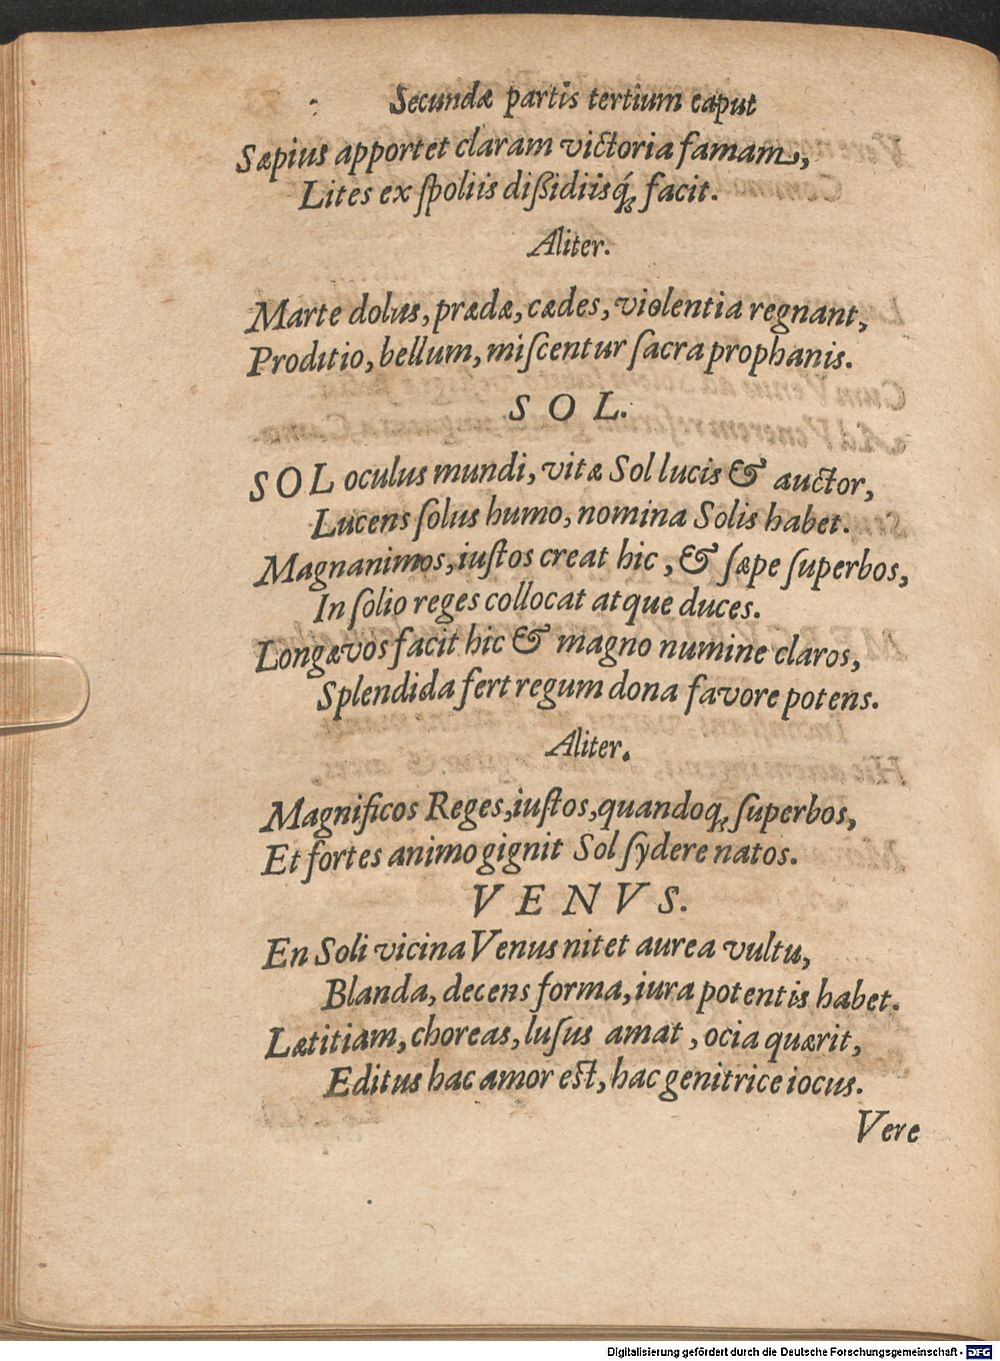 Secundæ partis tertium caput
Sæpius apportet claram victoria famam,
Lites ex ſpoliis dißidiisq́; facit.
Aliter.
Marte dolus, prædæ, cædes, violentia regnant,
Proditio, bellum, miſcentur ſacra prophanis.
S O L.
SOL oculus mundi, vitæ Sol lucis & auctor,
Lucens ſolus humo, nomina Solis habet.
Magnanimos, iuſtos creat hic, & ſæpe ſuperbos,
In ſolio reges collocat atque duces.
Longævos facit hic & magno numine claros,
Splendida fert regum dona favore potens.
Aliter.
Magnificos Reges, iuſtos, quandoq; ſuperbos,
Et fortes animo gignit Sol ſydere natos.
V E N V S.
En Soli vicina Venus nitet aurea vultu,
Blanda, decens forma, iura potentis habet.
Lætitiam, choreas, luſus amat, ocia quærit,
Editus hac amor eſt, hac genitrice iocus.
Vere
Digitalisierung gefördert durch die Deutsche Forschungsgemeinschaft - DFG